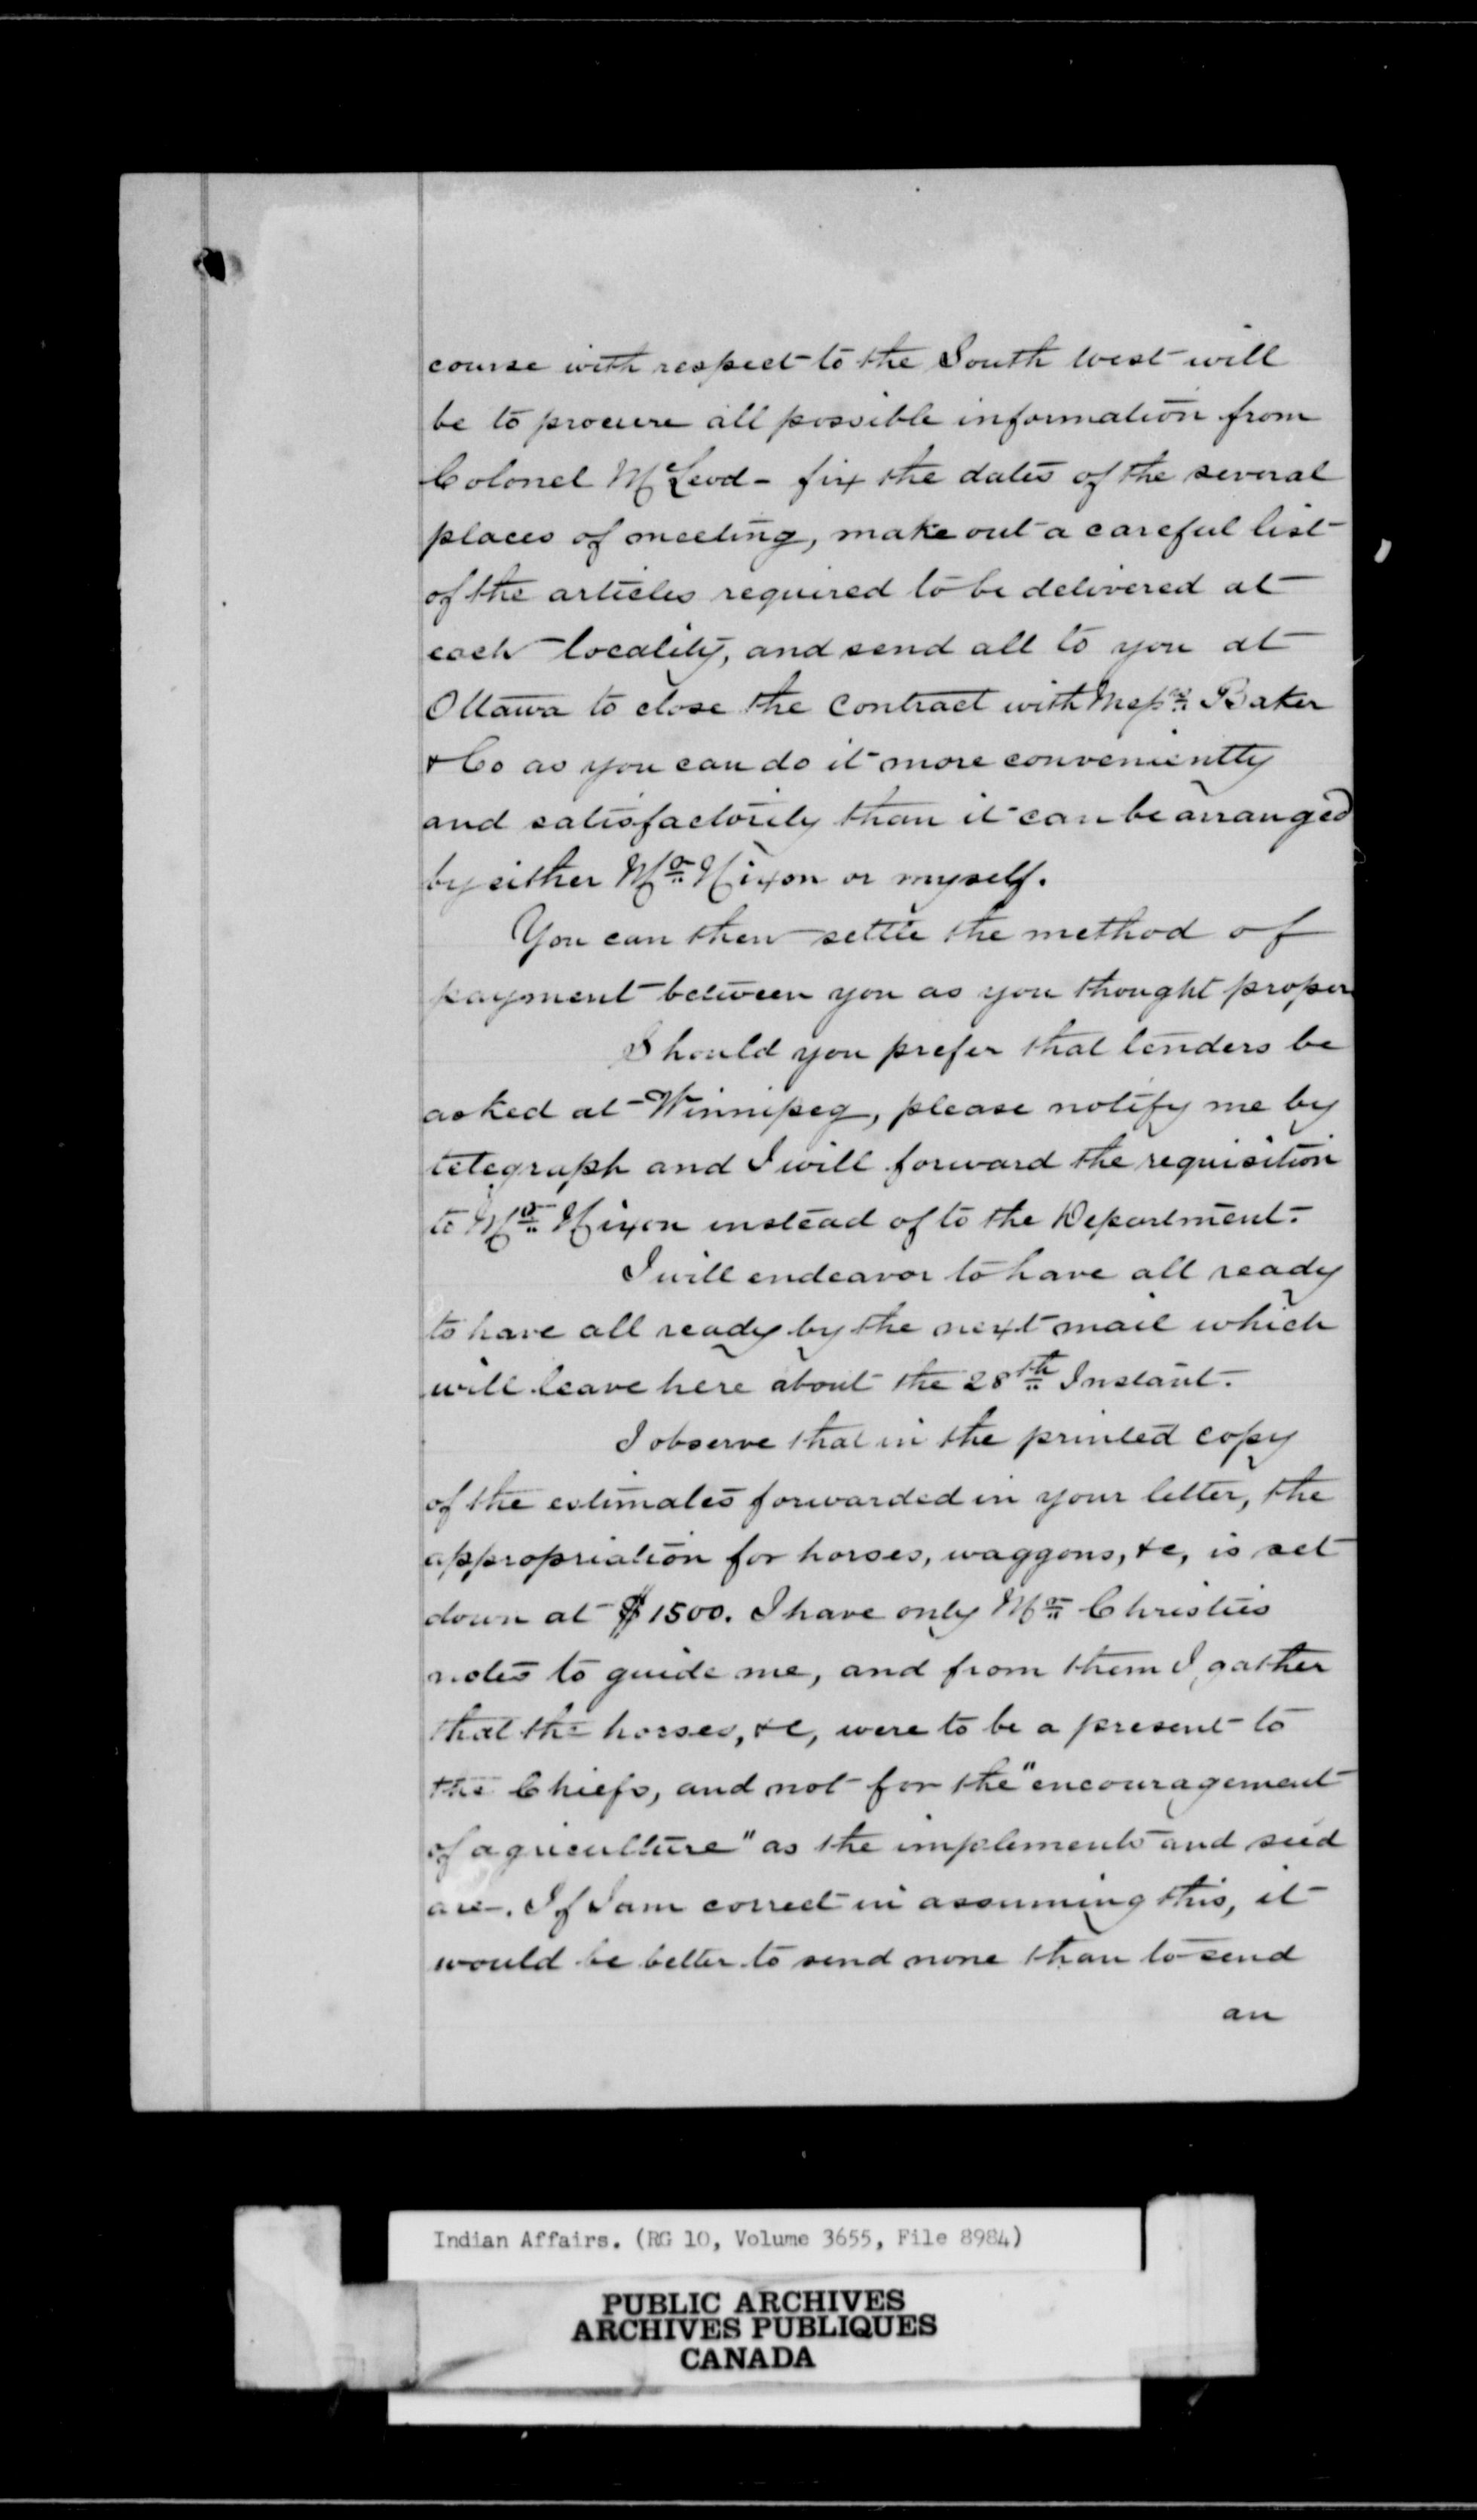 course with respect to the South West will
be to procure all possible information from
Colonel McLeod - fix the dates of the several
places of meeting, make out a careful list
of the articles required to be delivered at
each locality, and send all to you at
Ottawa to close the contract with Messrs Baker
& Co as you can do it more conveniently
and satisfactorily than it can be arranged
by either Mr Nixon or myself.
You can then settle the method of
payment between you as you thought proper
Should you prefer that tenders be
asked at Winnipeg, please notify me by
telegraph and I will forward the requisition
to Mr Nixon instead of to the Department.
I will endeavor to have all ready
to have all ready by the next mail which
will leave here about the 28th Instant.
I observe that in the printed copy
of the estimates forwarded in your letter, the
appropriation for horses, waggons, &c, is set
down at $1500. I have only Mr Christies
notes to guide me, and from them I gather
that the horses, &c, were to be a present to
the Chiefs, and not for the "encouragement
of agriculture" as the implements and seed
are. If I am correct in assuming this, it
would be better to send none than to send
an
Indian Affairs. (RG 10, Volume 3655, File 8984)
PUBLIC ARCHIVES
ARCHIVES PUBLIQUES
CANADA